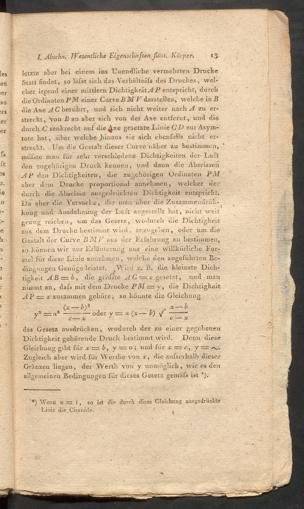 I. Abschn. Wesentliche Eigenschaften flüss. Körper. 13
letzte aber bei einem ins Unendliche vermehrten Drucke
Statt findet, so läfst sich das Verhältnifs des Druckes, wel-
cher irgend einer mittlern Dichtigkeit AP entspricht, durch
die Ordinaten PM einer Curve BMV darstellen, welche in B
die Axe AC berührt, und sich nicht weiter nach A zu er-
streckt, von B an aber sich von der Axe entfernt, und die
durch C senkrecht auf die Axe gesetzte Linie CD zur Asym-
tote hat, über welche hinaus sie sich ebenfalls nicht er-
streckt. Um die Gestalt dieser Curve näher zu bestimmen,
müfste man für sehr verschiedene Dichtigkeiten der Luft
den zugehörigen Druck kennen, und dann die Abscissen
AP den Dichtigkeiten, die zugehörigen Ordinaten PM
aber dem Drucke proportional annehmen, welcher der
durch die Abscisse ausgedrückten Dichtigkeit entspricht.
Da aber die Versuche, die man über die Zusammendrük-
kung und Ausdehnung der Luft angestellt hat, nicht weit
genug reichen, um das Gesetz, wodurch die Dichtigkeit
aus dem Drucke bestimmt wird, anzugeben, oder um die
Gestalt der Curve BMV aus der Erfahrung zu bestimmen,
so können wir zur Erläuterung nur eine willkührliche For-
mel für diese Linie annehmen, welche den angeführten Be-
dingungen Genüge leistet. Wird z. B. die kleinste Dich-
tigkeit AB = b, die gröfste AC = c gesetzt, und man
nimmt an, dafs mit dem Drucke PM = y, die Dichtigkeit
AP = x zusammen gehöre; so könnte die Gleichung
y² = n² (x—b)³ / c—x oder y = n (x—b) √ x—b / c—x
das Gesetz ausdrücken, wodurch der zu einer gegebenen
Dichtigkeit gehörende Druck bestimmt wird. Denn diese
Gleichung gibt für x = b, y = o; und für x = c, y = ∞.
Zugleich aber wird für Werthe von x, die aufserhalb dieser
Gränzen liegen, der Werth von y unmöglich, wie es den
allgemeinen Bedingungen für dieses Gesetz gemäfs ist *).
*) Wenn n = 1, so ist die durch diese Gleichung ausgedrückte
Linie die Cissoide.